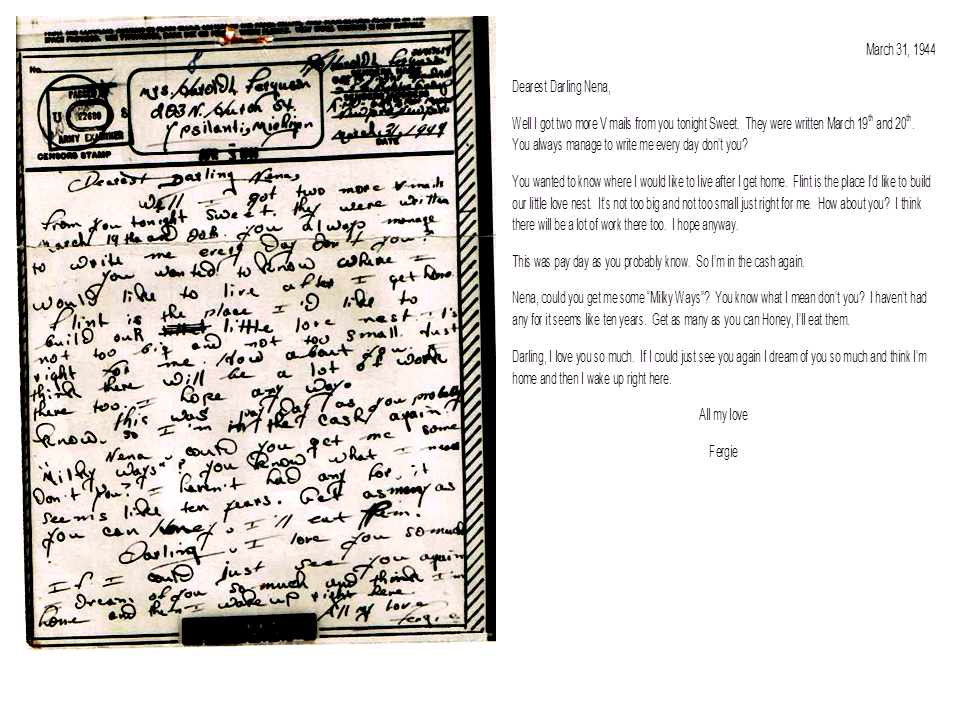 No.
PASSED BY
U S
ARMY EXAMINER
CENSORS STAMP
Mrs. Harold Ferguson
203 N. Huron St.
Ypsilanti, Michigan
Harold Ferguson
March 31, 1944
DATE
Dearest Darling Nena,
Well I got two more V mails
from you tonight Sweet. They were written
March 19th and 20th. You always manage
to write me every day don't you?
You wanted to know where I
would like to live after I get home.
Flint is the place I'd like to
build our little love nest. It's
not too big and not too small just
right for me. How about you? I
think there will be a lot of work
there too. I hope any way.
This was pay day as you probably
know. So I'm in the cash again.
Nena, could you get me some
"Milky Ways"? You know what I mean
Don't you? I haven't had any for it
seems like ten years. Get as many as
you can Honey, I'll eat them.
Darling, I love you so much
If I could just see you again
I Dream of you so much and think I'm
home and then I wake up right here.
All my love
Fergie
March 31, 1944
Dearest Darling Nena,
Well I got two more V mails from you tonight Sweet. They were written March 19th and 20th.
You always manage to write me every day don't you?
You wanted to know where I would like to live after I get home. Flint is the place I'd like to build
our little love nest. It's not too big and not too small just right for me. How about you? I think
there will be a lot of work there too. I hope anyway.
This was pay day as you probably know. So I'm in the cash again.
Nena, could you get me some "Milky Ways"? You know what I mean don't you? I haven't had
any for it seems like ten years. Get as many as you can Honey, I'll eat them.
Darling, I love you so much. If I could just see you again I dream of you so much and think I'm
home and then I wake up right here.
All my love
Fergie